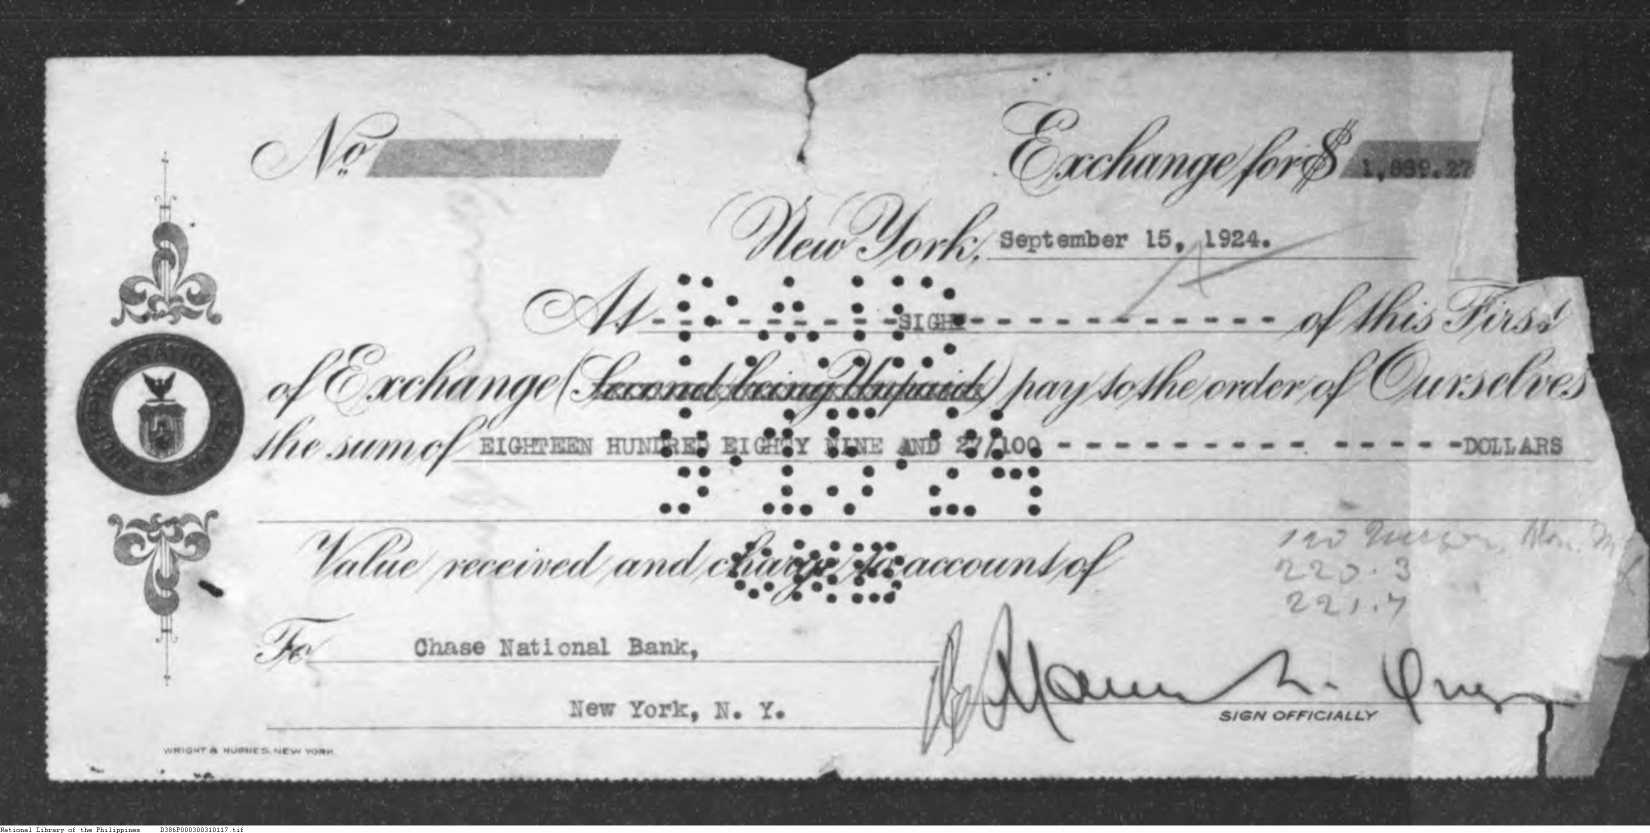 No.
Exchange for $ 1,889.27
New York, September 15, 1924.
At - - - - - - - - SIGHT - - - - - - - - - - - - of this First
of Exchange (Second being Unpaid) pay to the order of Ourselves
the sum of EIGHTEEN HUNDRED EIGHTY NINE AND 27/100 - - - - - - - - - - - - - - - DOLLARS
PAID
9 15 24
Value received and charge to account of
220.3
221.7
To Chase National Bank,
New York, N. Y.
SIGN OFFICIALLY
WRIGHT & HUGHES, NEW YORK.
National Library of the Philippines D386P000300310117.tif